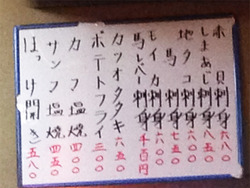 赤貝刺身 六八〇
しまあじ刺身 八五〇
地タコ刺身 六〇〇
馬刺身 七五〇
モイカ刺身 六〇〇
馬レバー刺身 千百円
カツオタタキ 六五〇
ポテトフライ 三〇〇
カマ塩焼 四〇〇
サンマ塩焼 四五〇
ほっけ開き 五八〇